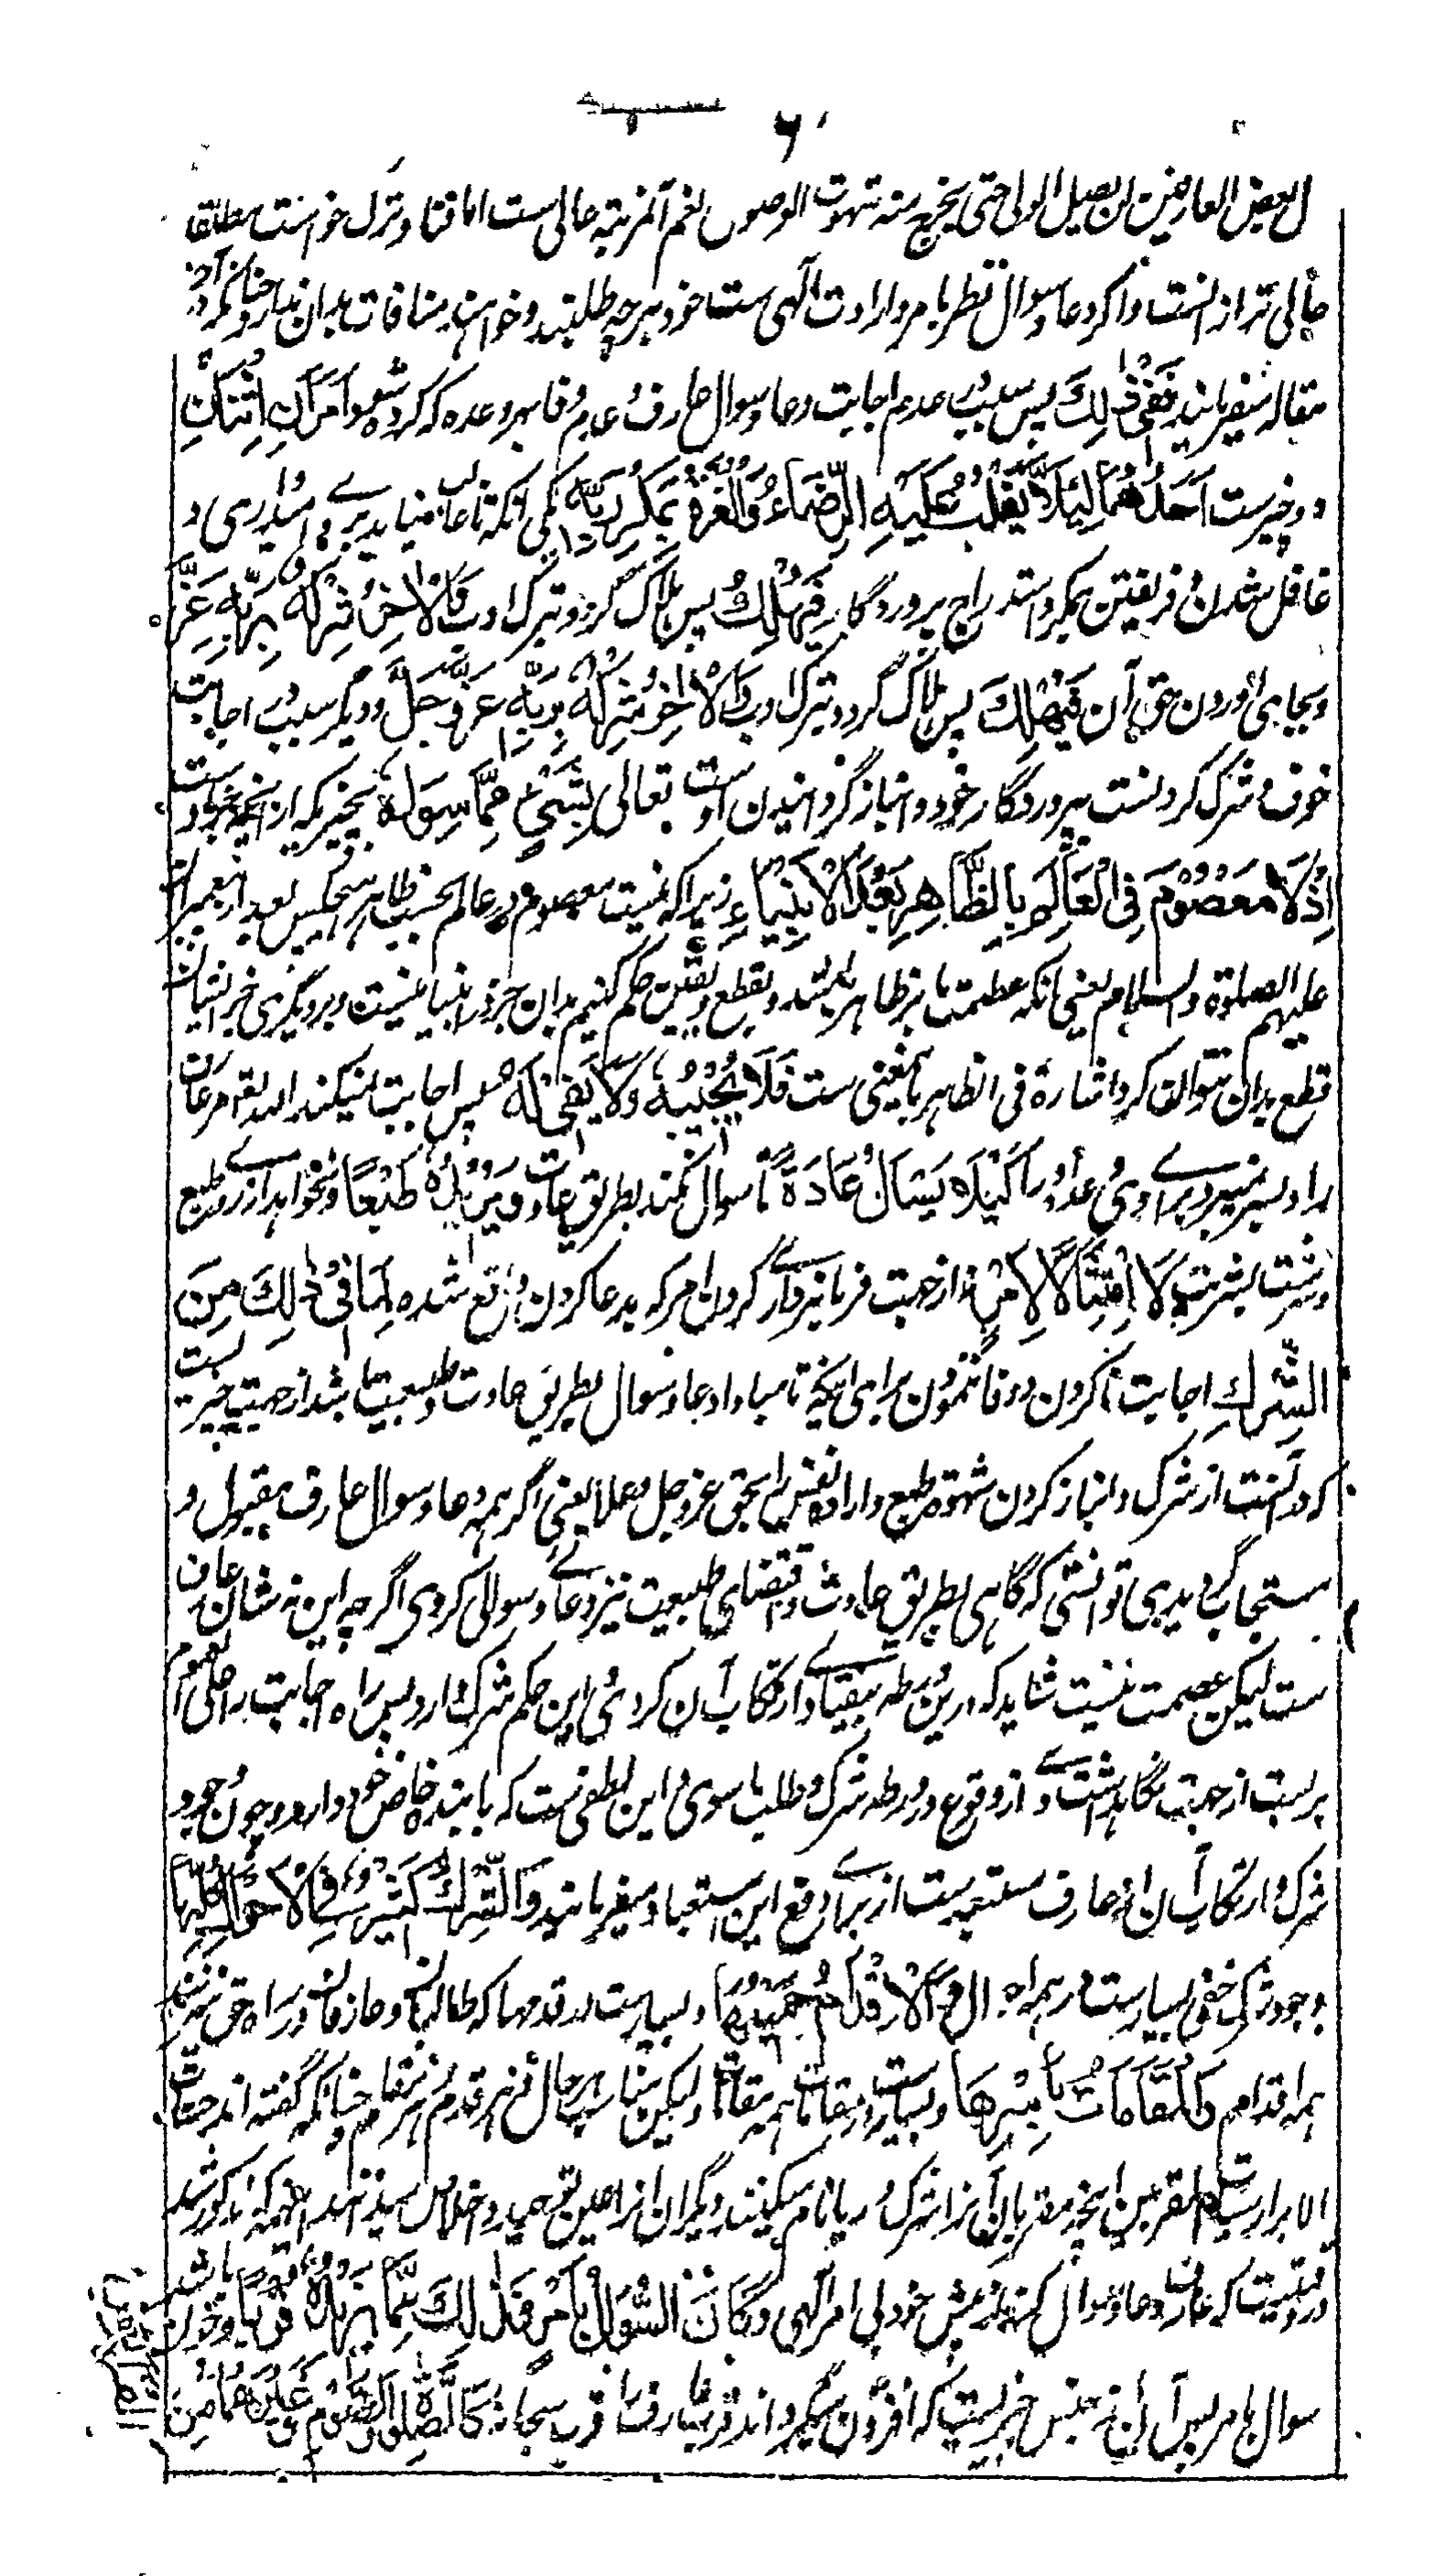 ل بعض العارفین لن یصل الولی حتی یخرج منه شهوت الوصول نعم آن مرتبه عالی است اما فنا و ترک خواست مطلقا
عالی تر از انست و اگر دعا و سوال نظر بامر و ارادت الهی ست خود هر چه طلبند و خواهند منافات بدان ندارد چنانکه در آخر
مقاله میفرمایند فَفِیْ ذٰلِكَ پس سبب عدم اجابت دعا و سوال عارف و عدم وفا بهر وعده که کرده شد اَمْرَانِ اِثْنَانِ
دو چیزست اَحَدُهُمَا لِئَلَّا یَغْلِبَ عَلَیْهِ الرَّجَاءُ وَالْغِرَّةُ بِمَكْرِ رَبِّهٖ یکی آنکه تا غالب نیاید بروے امیدواری و
غافل شدن و فریفتن بمکر و استدراج پروردگار فَیَهْلِكَ پس هلاک گردد و بترک ادب وَالْاٰخَرُ شِرْكُهٗ بِرَبِّهٖ عَزَّ
و بجای آوردن حق آن فَیَهْلِكَ پس هلاک گردد و بترک ادب وَالْاٰخَرُ شِرْكُهٗ بِرَبِّهٖ عَزَّ وَجَلَّ و دیگر سبب اجابت
خوف شرک کردنست بپروردگار خود و انباز گردانیدن اوست تعالی بِشَیْءٍ مِمَّا سِوَاهُ بچیزیکه از
اِذْ لَا مَعْصُوْمَ فِی الْعَالَمِ بِالظَّاهِرِ بَعْدَ الْاَنْبِیَاءِ زیرا که نیست معصوم در عالم بحسب ظاهر هیچکس بعد از پیغمبران
علیهم الصلوة والسلام یعنی آنکه عصمت بر ظاهر باشد و بقطع و یقین حکم کنیم بدان جز در انبیا نیست و بر دیگری جز ایشان
قطع بدان نتوان کرد اشارة فی الظاهر باین معنی ست فَلَا یُجِیْبُهٗ وَلَا یَفِیْ لَهٗ پس اجابت نمیکند الله تعالی مر عارف
را و بسر نمیبرد براے وی وعده را كَیْلَا یَسْاَلَ عَادَةً تا سوال نکند بطریق عادت وَیُرِیْدَهٗ طَبْعًا و نخواهد از روے طبع
و سرشت بشریت لَا اِمْتِثَالًا لِلْاَمْرِ نه از جهت فرمانبرداری کردن امر که بدعا کردن واقع شده لِمَا فِیْ ذٰلِكَ مِنَ
الشِّرْكِ اجابت ناکردن و وفا نمودن برای اینکه تا مبادا دعا و سوال بطریق عادت و طبیعت باشد از جهت چیزیست
که در آنست از شرک و انباز کردن شهوة طبع و اراده نفس را بحق عز و جل و علا یعنی اگر همه دعا و سوال عارف مقبول و
مستجاب گردیدی توانستی که گاهی بطریق عادت و اقتضای طبیعت نیز دعا و سوال کردی اگر چه این نه شان عارف
ست لیکن عصمت نیست شاید که درین ورطه بیفتادے و ارتکاب آن کردی و این حکم شرک دارد پس راه اجابت
بر بست از جهت نگاهداشت وے از وقوع در ورطه شرک و طلب ما سوی و این لطفی ست که با بنده خاص خود دارد و چون وجود
شرک و ارتکاب آن از عارف مستبعد ست از براے رفع این استبعاد میفرمایند وَالشِّرْكُ كَثِیْرٌ فِی الْاَحْوَالِ كُلِّهَا
وجود شرک خفی بسیارست در همه احوال وَالْاَقْدَامِ جَمِیْعِهَا و بسیارست در قدمها که طالبان و عارفان در راه حق میزنند
همه اقدام وَالْمَقَامَاتِ بِاَسْرِهَا و بسیارست در مقامات همه مقامات و لیکن مناسب هر حال و هر قدم و هر مقام چنانکه گفته اند حسنات
الابرار سیئات المقربین انچه مقربان آنرا شرک و ریا نام میکنند دیگران آنرا عین توحید و اخلاص میدانند اینهمه که مذکور شد
در وقتیست که عارف دعا و سوال کند پیش خود بی امر الهی وَكَانَ السُّؤَالُ بِاَمْرٍ فَذٰلِكَ مِمَّا یَزِیْدُهٗ قُرْبًا و چون باشد
سوال بامر پس آن از جنس چیزیست که افزون میگرداند عارف را قرب بجانب كَالصَّلٰوةِ وَالصَّوْمِ وَغَیْرِهِمَا مِنَ